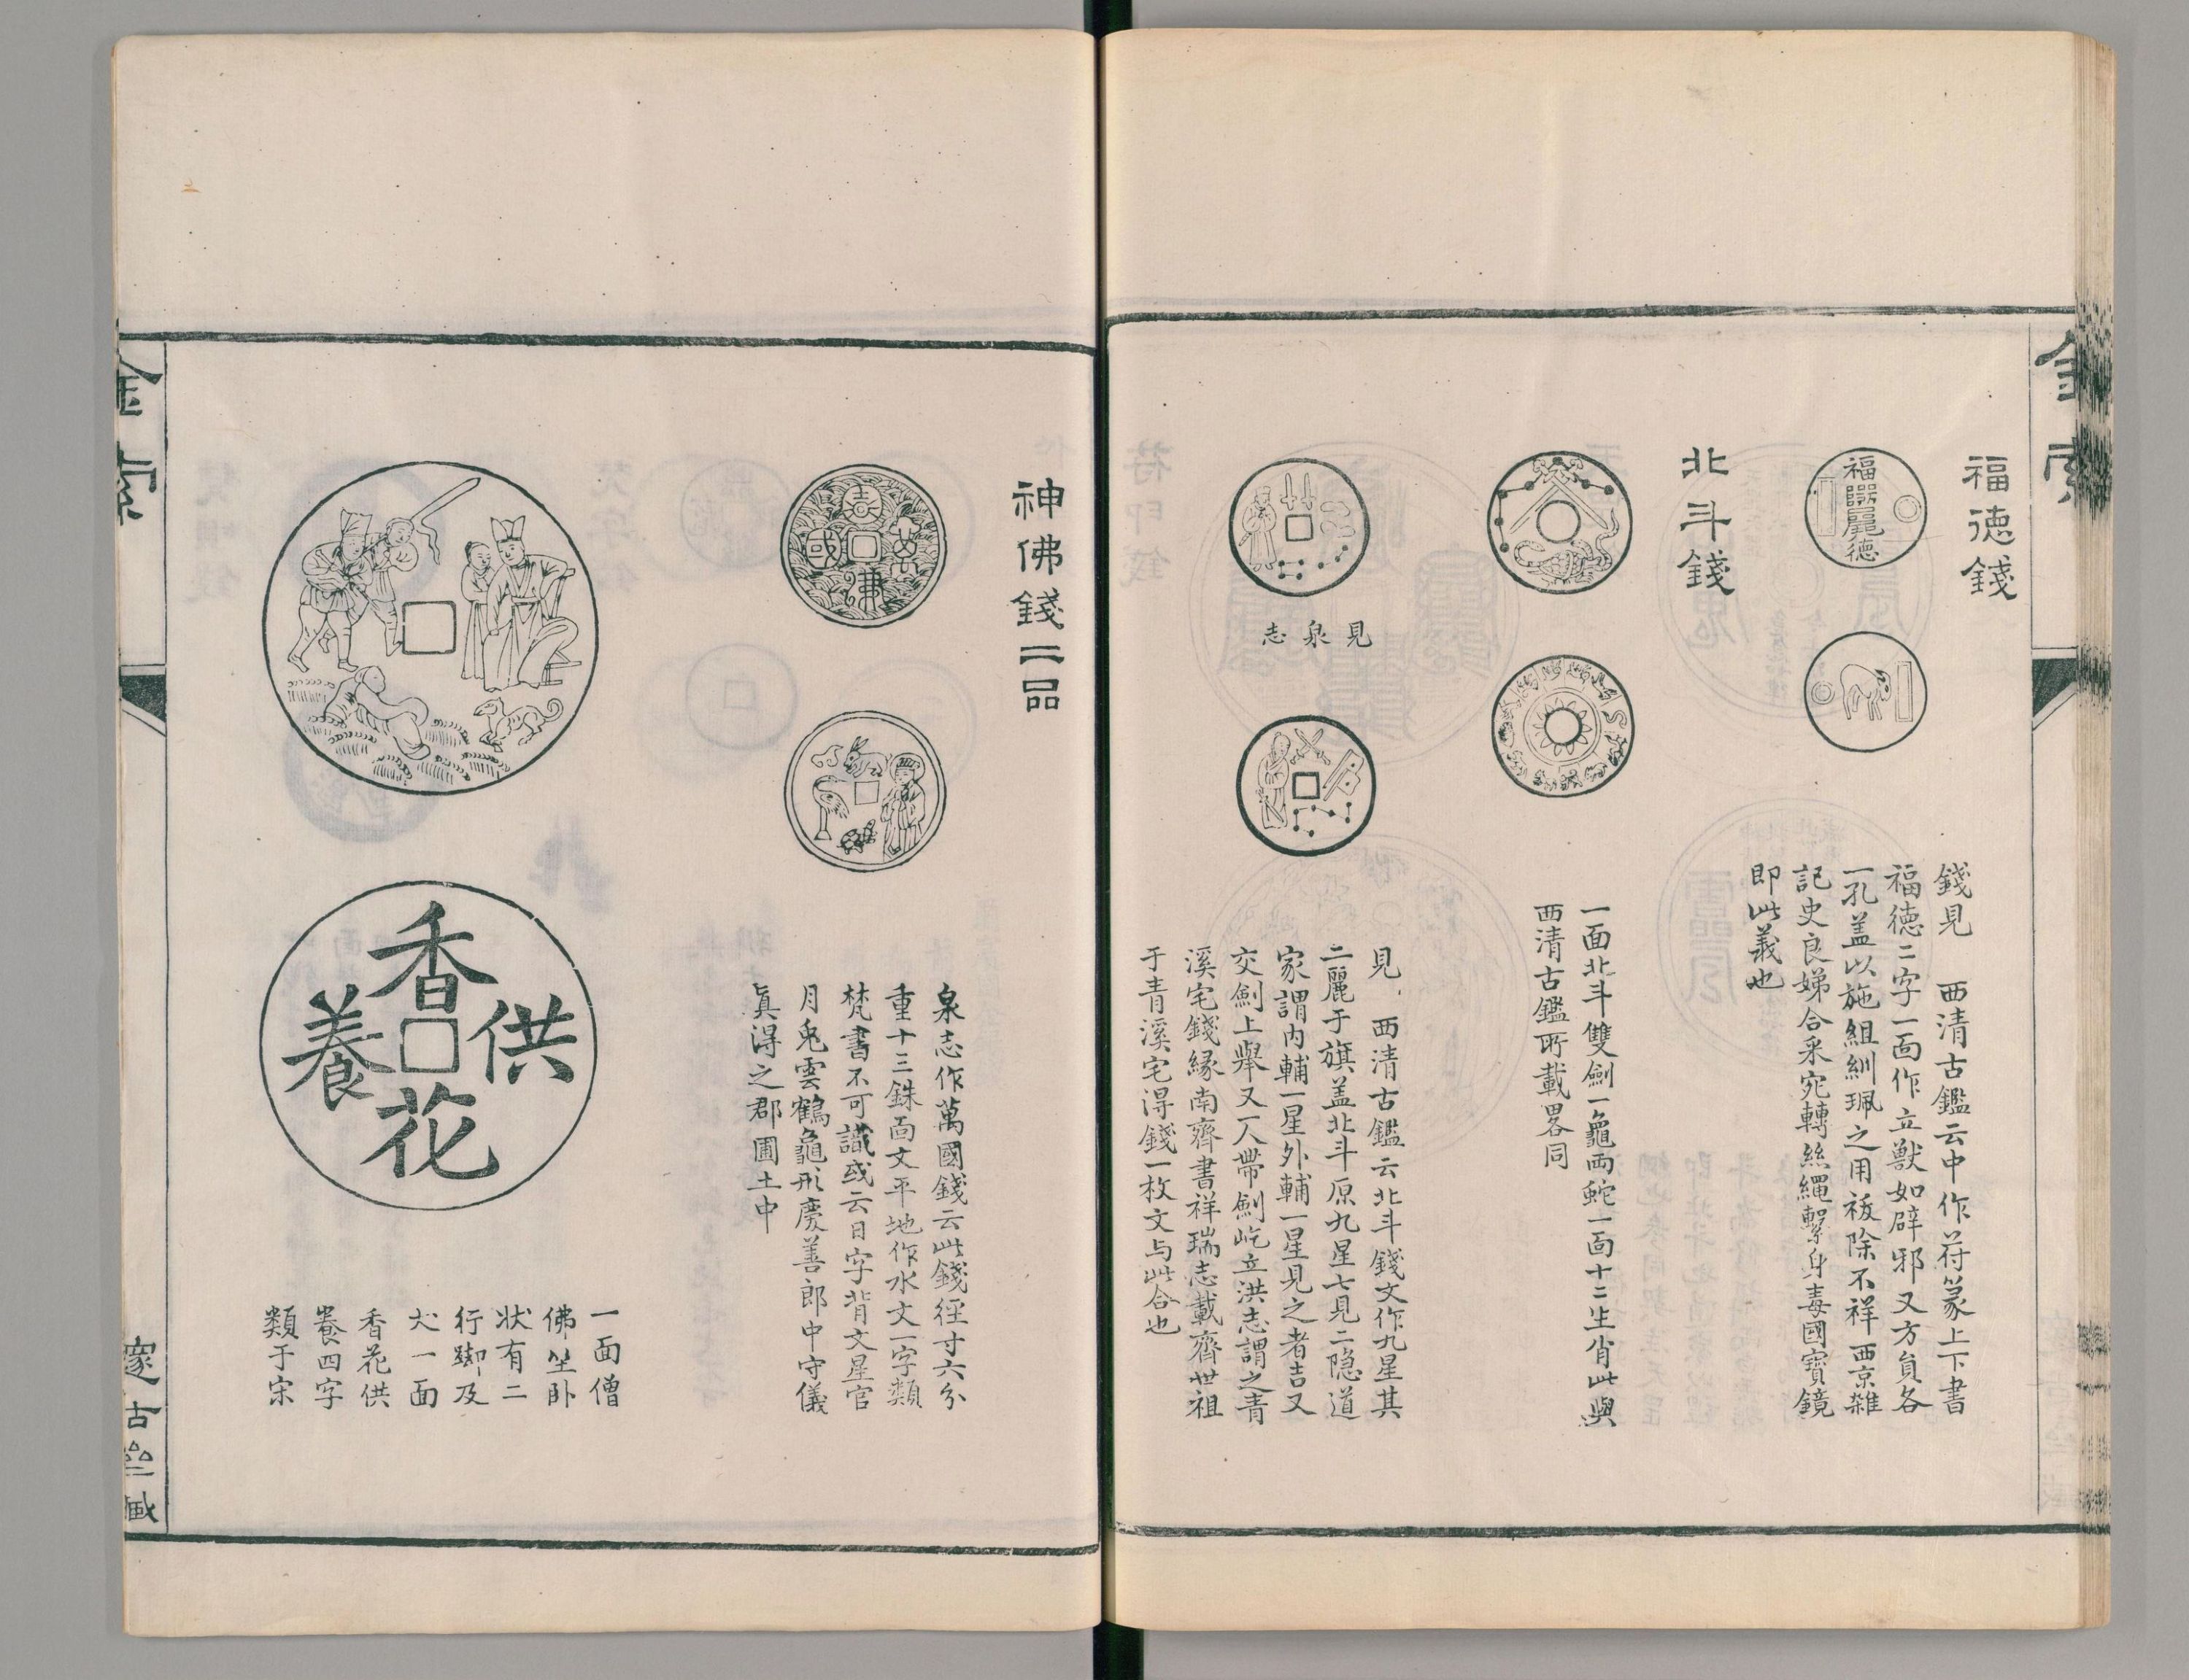 金索
福德錢
福
德
錢見　西清古鑑云中作符篆上下書
福德二字一面作立獸如辟邪又方負各
一孔盖以施組紃珮之用祓除不祥西京雜
記史良娣合采宛轉絲繩繫身毒國寶鏡
即此義也
北斗錢
一面北斗雙劍一龜兩蛇一面十二生肖此與
西清古鑑所載畧同
見泉志
見　西清古鑑云北斗錢文作九星其
二麗于旗盖北斗原九星七見二隐道
家謂内輔一星外輔一星見之者吉又
交劍上舉又一人帶劍屹立洪志謂之青
溪宅錢緣南齊書祥瑞志載齊世祖
于青溪宅得錢一枚文与此合也
神佛錢二品
泉志作萬國錢云此錢徑寸六分
重十三銖面文平地作水文一字類
梵書不可識或云日字背文星官
月兎雲鶴龜形慶善郎中守儀
眞得之郡圃土中
香花供養
一面僧
佛坐卧
狀有二
行踋及
犬一面
香花供
養四字
類于宋
金索
邃古齋藏